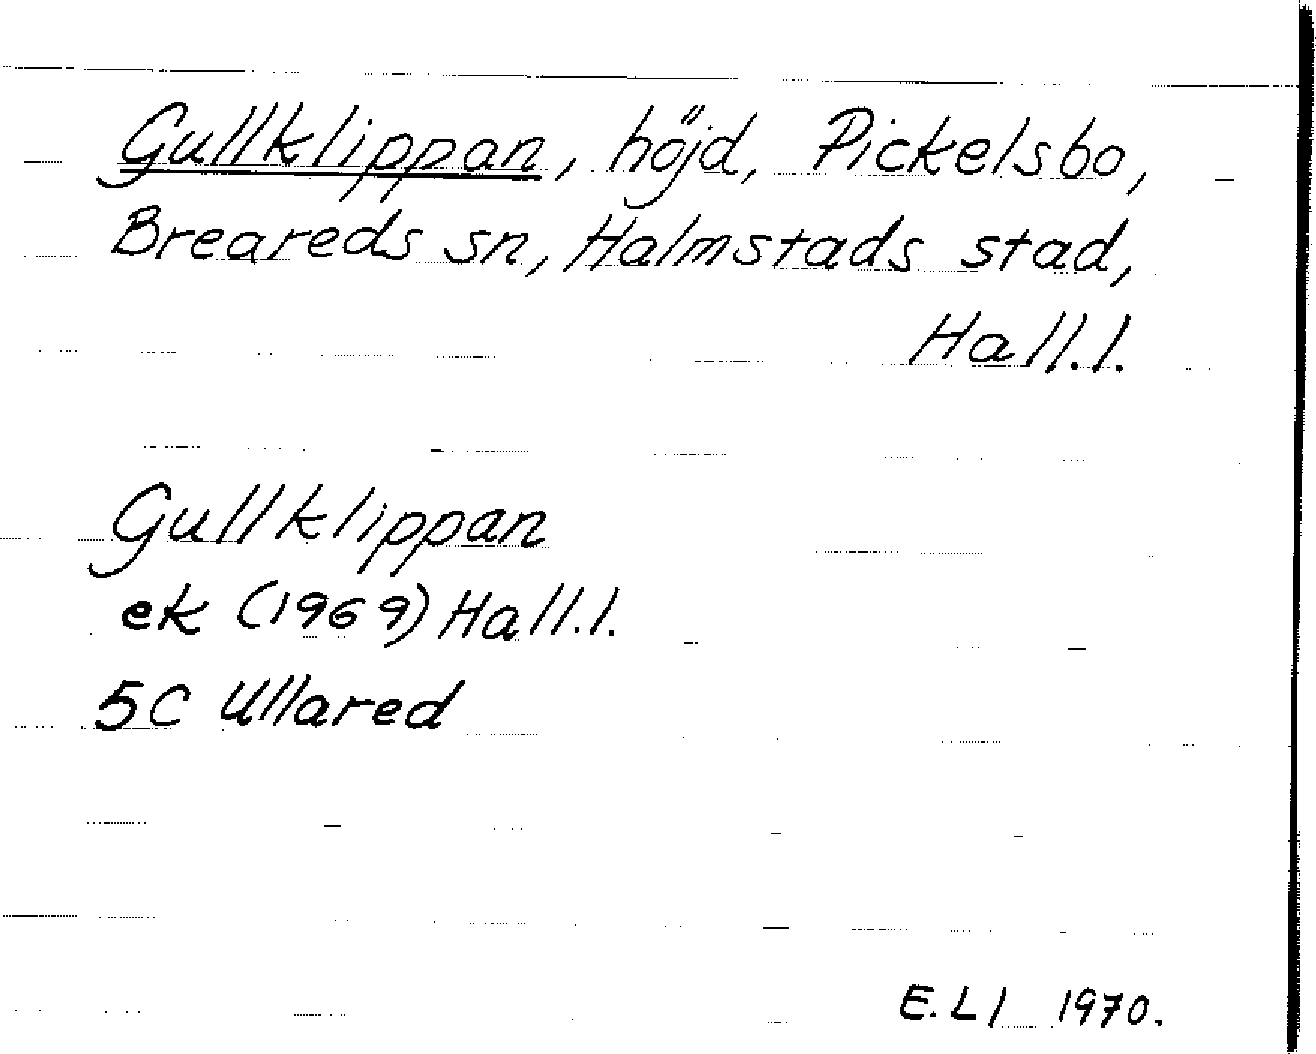 Gullklippan, höjd, Pickelsbo,
Breareds sn, Halmstads stad,
Hall.l.
Gullklippan
ek (1969) Hall.l.
5C Ullared
E.Ll 1970.